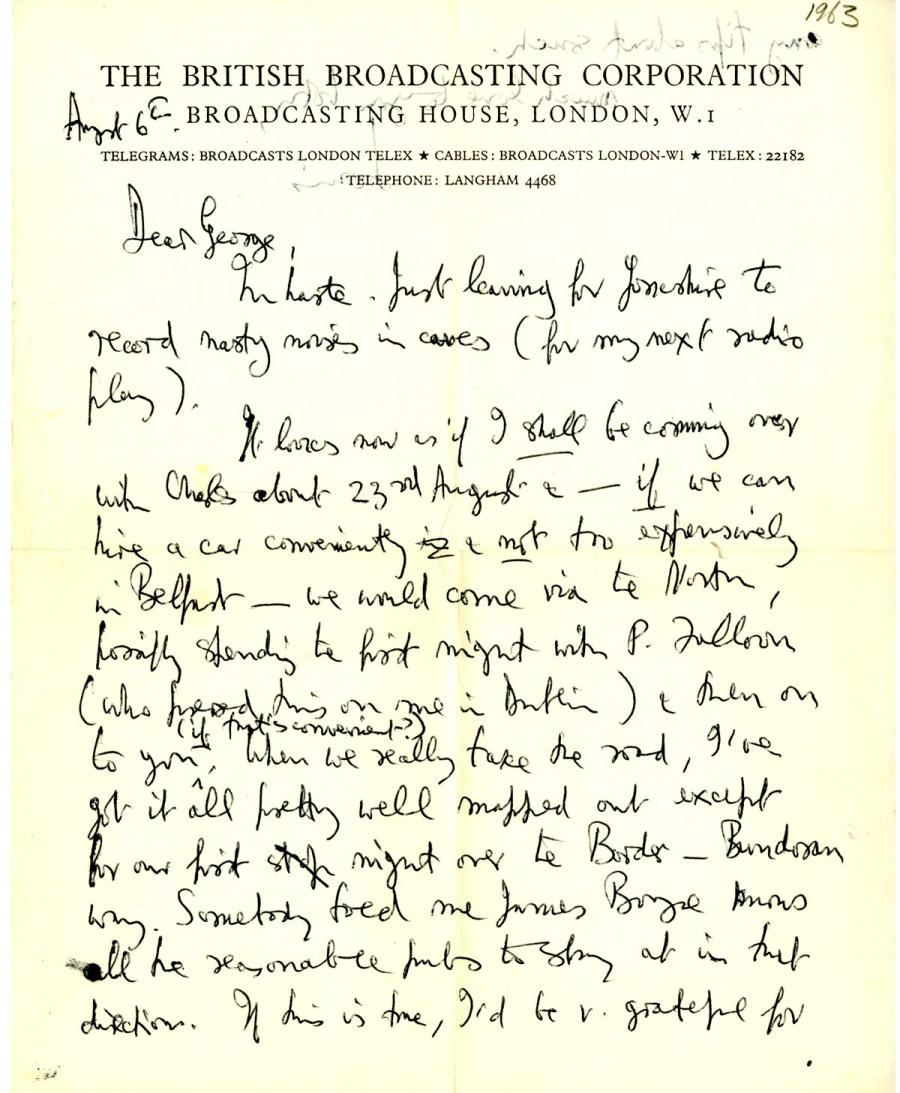 1963
THE BRITISH BROADCASTING CORPORATION
August 6th. BROADCASTING HOUSE, LONDON, W.1
TELEGRAMS: BROADCASTS LONDON TELEX ★ CABLES: BROADCASTS LONDON-W1 ★ TELEX: 22182
TELEPHONE: LANGHAM 4468
Dear George,
In haste. Just leaving for Yorkshire to
record nasty noises in caves (for my next radio
play).
It looks now as if I shall be coming over
with about 23rd August & — if we can
hire a car conveniently & not too expensively
in Belfast — we would come via the North,
possibly spending the first night with P.
(who pressed this on me in Dublin) & then on
(if that's convenient?)
to you. When we really take the road, I've
got it all pretty well mapped out except
for our first stop night over the Border — Bundoran
way. Somebody told me James Boyce knows
all the reasonable pubs to stay at in that
direction. If this is true, I'd be v. grateful for
any tips about such.